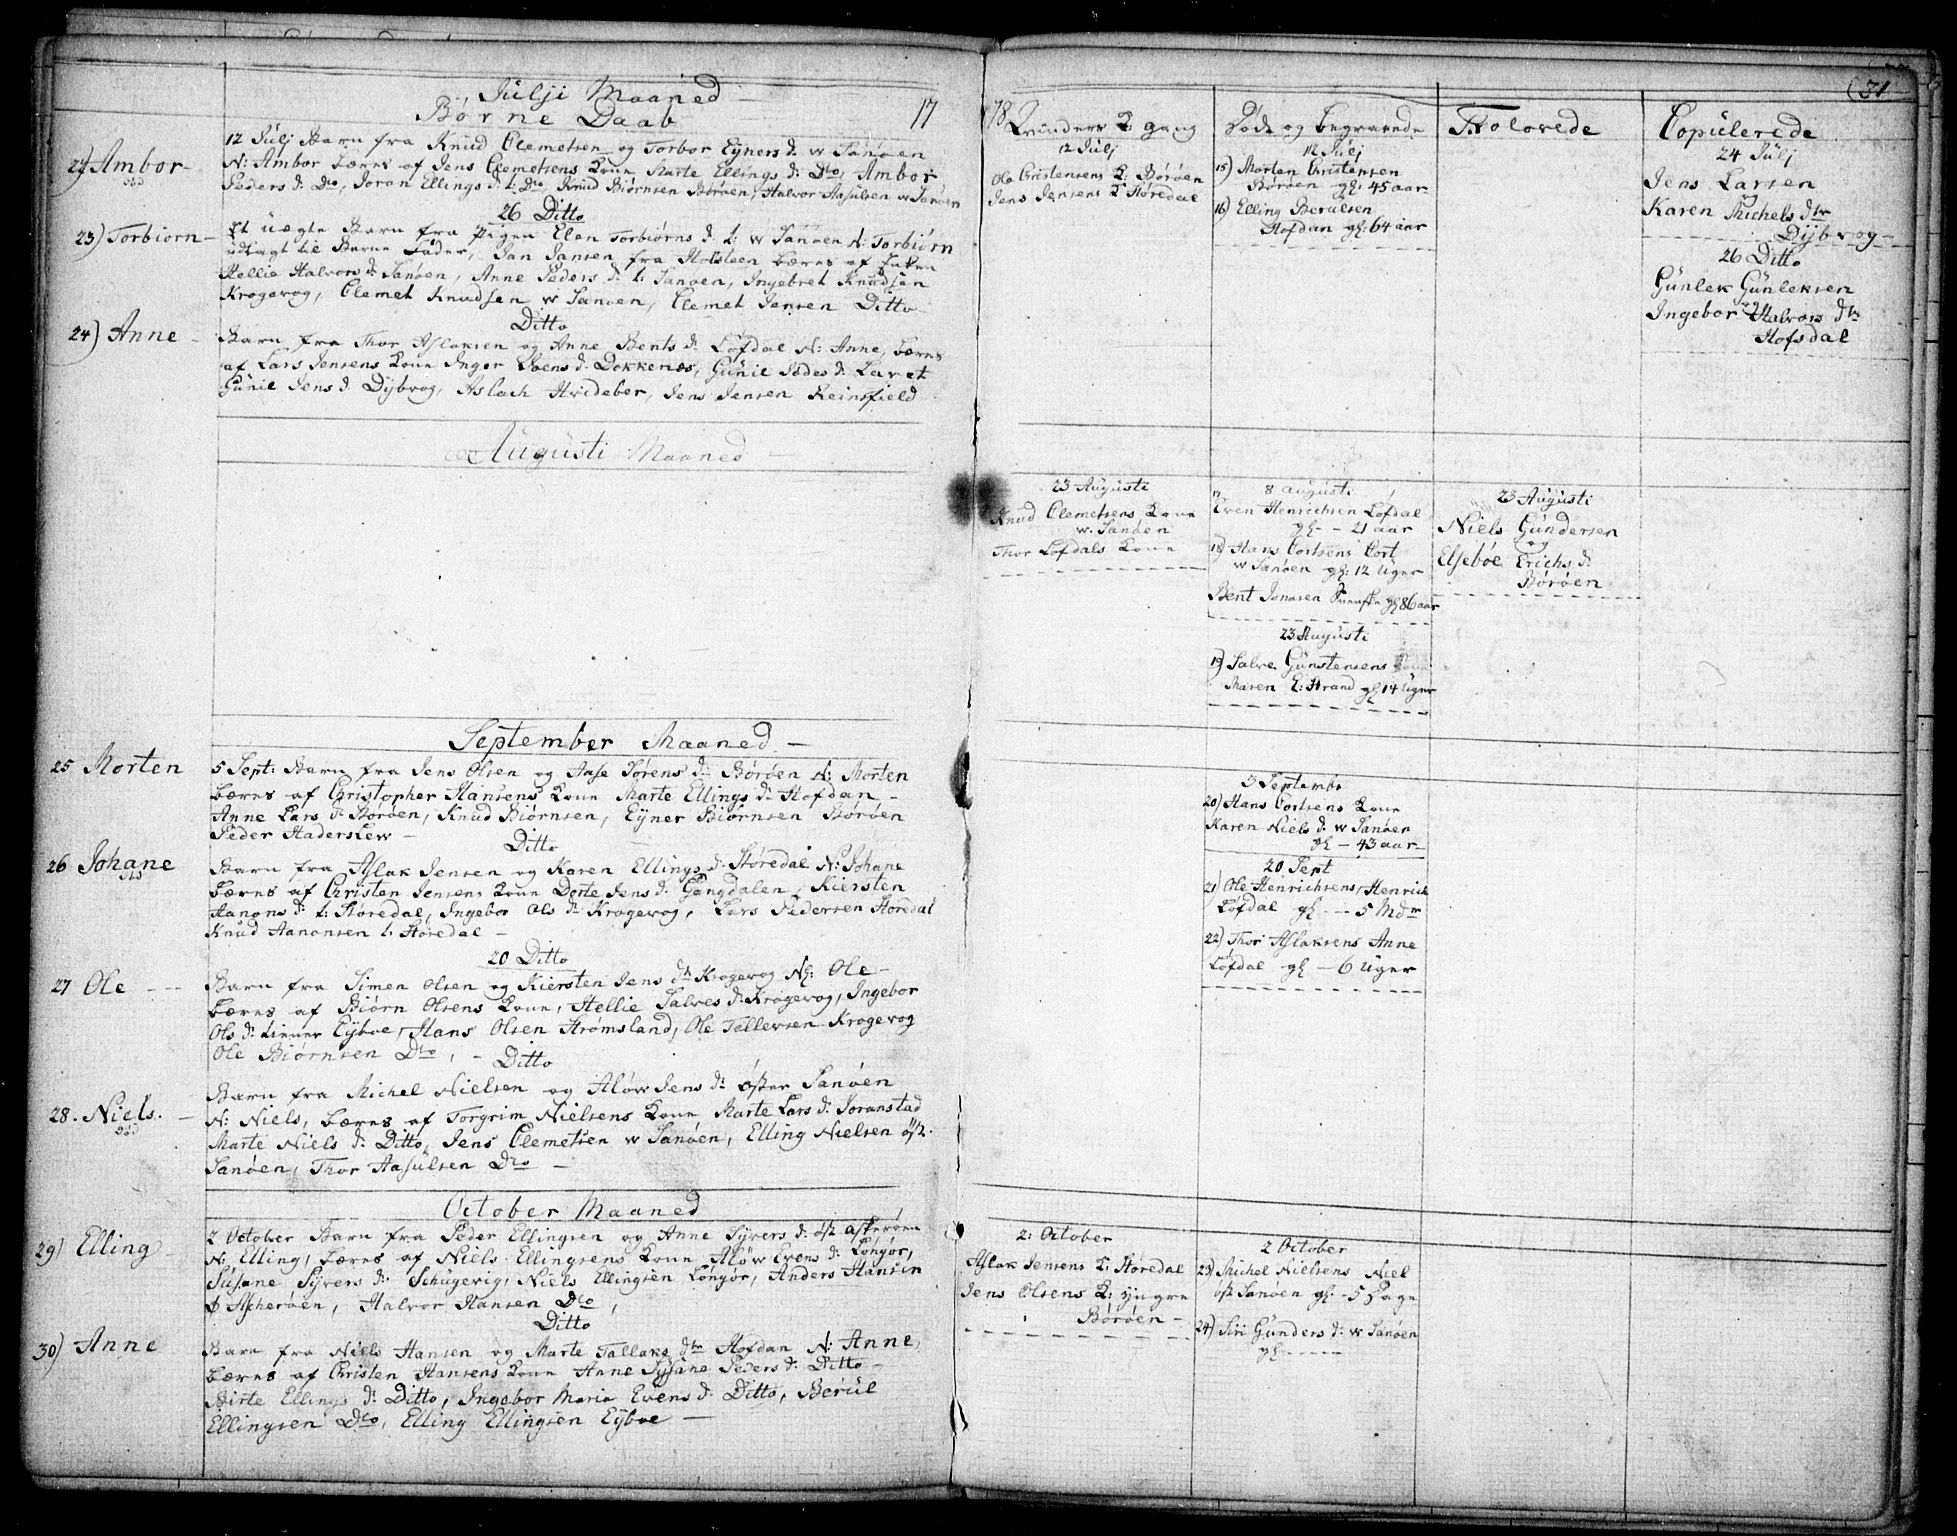 Julji Maaned
Børne Daab
17
22) Ambor
obd
12 Julj Barn fra Knud Clemetsen og Torbor Eyners d: w Sanøen
N: Ambor bæres af Jens Clemetsens Kone, Marte Ellings d: Dto, Ambor
Peders d: Dto, Joran Ellings d: t: Dto, Knud Biørnsen Børøen, Halvor Aasulsen w Sanøen
26 Ditto
23) Torbiorn
Et uægte Barn fra Pigen Elen Torbiørns d: t: w Sanøen N: Torbiørn
udlagt til Barne Fader, Jan Jansen fra Holsteen bæres af
Hellie Halvors d: Sanøen, Anne Peders d: t: Sanøen, Ingebret Knudsen
Krogevog, Clemet Knudsen w Sanøen, Clemet Jensen Ditto
Ditto
24) Anne
Barn fra Thor Aslaksen og Anne Bents d: Lofdal N: Anne, bæres
af Lars Jensens Kone Inger d: Dokkenes, Gunil d: Laret
Gunil Jens d: Dybvog, Aslach Hvideber, Jens Jensen Reinsfield
Augusti Maaned
September Maaned
25 Morten
5 Sept: Barn fra Jens Olsen og Aase Sørens d: Børøen N: Morten
bæres af Christopher Hansens Kone Marte Ellings d: Hofdan
Anne Lars d: Børøen, Knud Biørnsen, Eyner Biørnsen Børøen
Peder Haderslew
Ditto
26 Johane
obd
Barn fra Aslak Jensen og Karen Ellings d: Støredal N: Johane
bæres af Christen Jensens Kone Dorte Jens d: Gangdalen, Kiersten
Aanons d: t: Støredal, Ingebor Ols d: Krogevog, Lars Pedersen Støredal
Knud Aanonsen t: Støredal
20 Ditto
27 Ole
Barn fra Simen Olsen og Kiersten Jens d: Krogevog N: Ole
bæres af Biørn Olsens Kone, Hellie Salves d: Krogevog, Ingebor
Ols d: Eyboe, Hans Olsen Strømsland, Ole Tellevsen Krogevog
Ole Biørnsen Dto,
Ditto
28. Niels.
obd
Barn fra Michel Nielsen og Aløw Jens d: øster Sanøen
N: Niels, bæres af Torgrim Nielsens Kone Marte Lars d: Joranstad
Marte Niels d: Ditto, Jens Clemetsen w Sanøen, Elling Nielsen øst.
Sanøen, Thor Aasulsen Dto
October Maaned
29) Elling
2 October Barn fra Peder Ellingsen og Anne Syvers d: øst Askerøen
N: Elling, bæres af Niels Ellingsens Kone Aløw Evens d: Løngør,
Susane Syvers d: Schugevig, Niels Ellingsen Løngør, Anders Hansen
Ascherøen, Halvor Hansen Dto,
Ditto
30) Anne
Barn fra Niels Hansen og Marte Tallaks dtr Hofdan N: Anne,
bæres af Christen Hansens Kone Anne Susane Peders d: Ditto
Birte Ellings d: Ditto, Ingebor Maria Evens d: Ditto, Berul
Ellingsen Dto, Elling Ellingsen Eyboe
(31
78 Qvinders K: gang
12 Julj
Ole Christensens K: Børøen
Jens Jensens K Støredal
23 Augusti
Knud Clemetsens Kone
w. Sanøen
Thor Lofdals Kone
2: October
Aslak Jensens K: Støredal
Jens Olsens K: yngre
Børøen
Døde og begravede
12 Julj
15) Morten Christensen
Børøen gl: 45 aar
16) Elling Berulsen
Hofdan gl: 64 aar
8 Augusti
17 Even Henrichsen Lofdal
gl - 21 aar
18) Hans Cortsens Cort
w Sanøen gl: 12 Uger
Bent Jonasen gl 86 aar
23 Augusti
19) Salve Gunstensens
Maren E: Strand gl 14 Uger
5 Septembr
20) Hans Cortsens Kone
Karen Niels d: w Sanøen
gl - 43 aar
20 Sept
21) Ole Henrichsens Henrich
Lofdal gl - 5 Mdr
22) Thor Aslaksens Anne
Lofdal gl - 6 Uger
2 October
23) Michel Nielsens Niel
øst Sanøen gl - 5 Dage
24) Siri Gunders d: w Sanøen
gl
Trolovede
23 Augusti
Niels Gundersen
og
Elseboe Erichs d:
Børøen
Copulerede
24 Julj
Jens Larsen
Karen Michels dtr
Dybvog
26 Ditto
Gunlek Gunleksen
og
Ingebor Halvors dtr
Hofsdal